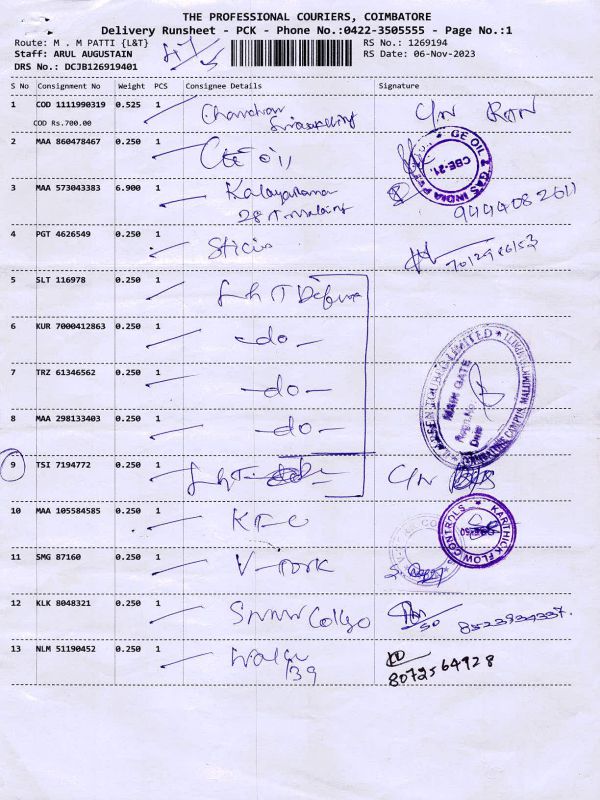 THE PROFESSIONAL COURIERS, COIMBATORE
Delivery Runsheet - PCK - Phone No.:0422-3505555 - Page No.:1
Route: M . M PATTI {L&T}
RS No.: 1269194
Staff: ARUL AUGUSTAIN
RS Date: 06-Nov-2023
DRS No.: DCJB126919401
S No Consignment No Weight PCS Consignee Details Signature
1 COD 1111990319 0.525 1 C/N
COD Rs.700.00
2 MAA 860478467 0.250 1
GE OIL & GAS INDIA
CBE-21.
3 MAA 573043383 6.900 1 Kalayarana
9444082611
4 PGT 4626549 0.250 1
5 SLT 116978 0.250 1 L & T Defence
6 KUR 7000412863 0.250 1 -do-
7 TRZ 61346562 0.250 1 -do-
8 MAA 298133403 0.250 1 -do-
LIMITED
MAIN GATE
Date
9 TSI 7194772 0.250 1 L & T C/N
10 MAA 105584585 0.250 1 KFC
KARTHICK FLOW CONTROLS
11 SMG 87160 0.250 1 V-Tork
12 KLK 8048321 0.250 1 College
13 NLM 51190452 0.250 1
139
8072564928